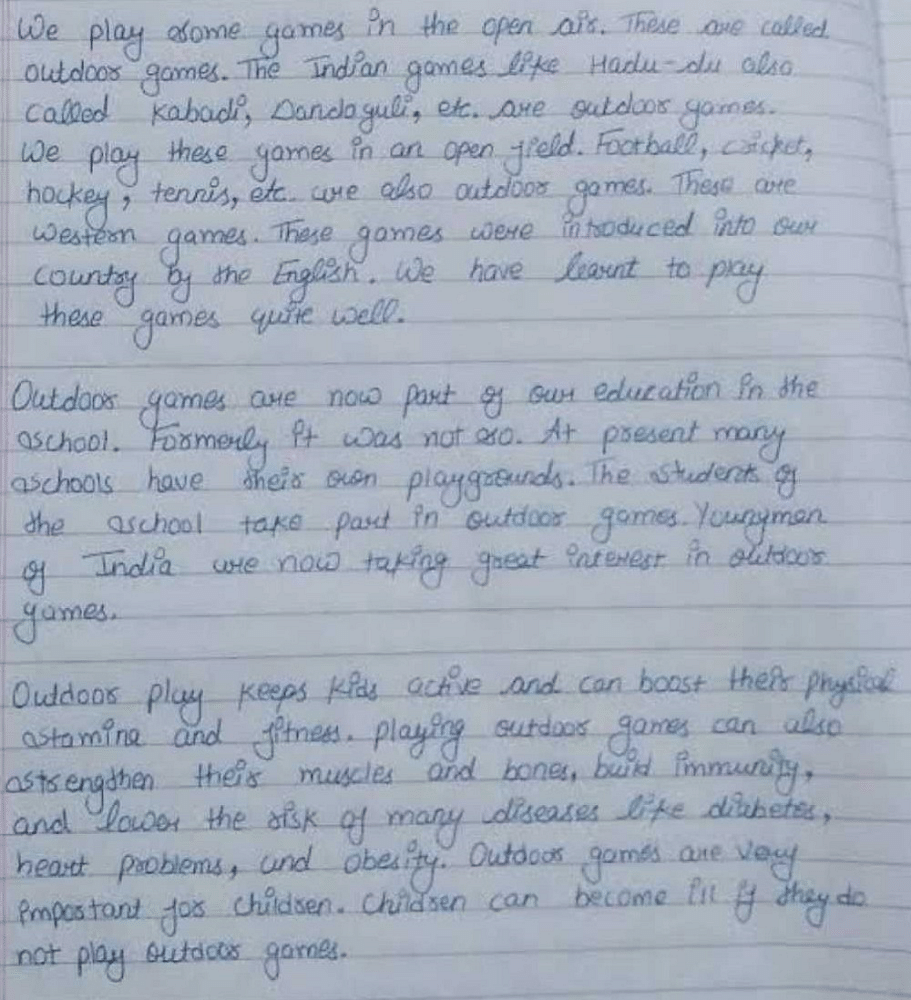 We play some games in the open air. These are called
outdoor games. The Indian games like Hadu-du also
called Kabadi, Dandaguli, etc. are outdoor games.
We play these games in an open field. Football, cricket,
hockey, tennis, etc. are also outdoor games. These are
Western games. These games were introduced into our
country by the English. We have learnt to play
these games quite well.
Outdoor games are now part of our education in the
school. Formerly it was not so. At present many
schools have their own playgrounds. The students of
the school take part in outdoor games. Youngmen
of India are now taking great interest in outdoor
games.
Outdoor play keeps kids active and can boost their physical
stamina and fitness. playing outdoor games can also
strengthen their muscles and bones, build immunity,
and lower the risk of many diseases like diabetes,
heart problems, and obesity. Outdoor games are very
important for children. Children can become ill if they do
not play outdoor games.